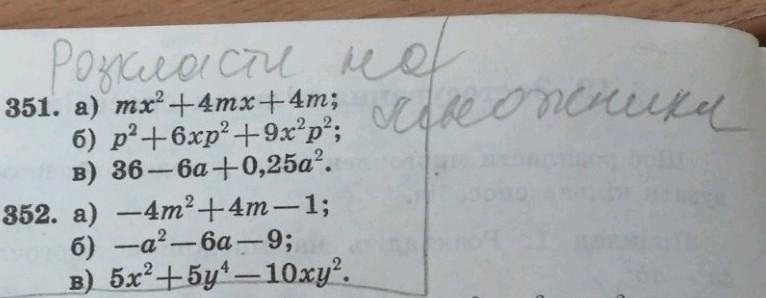 Розкласти на
множники
351. а) mx² + 4mx + 4m;
б) p² + 6xp² + 9x²p²;
в) 36 – 6a + 0,25a².
352. а) –4m² + 4m – 1;
б) –a² – 6a – 9;
в) 5x² + 5y⁴ – 10xy².